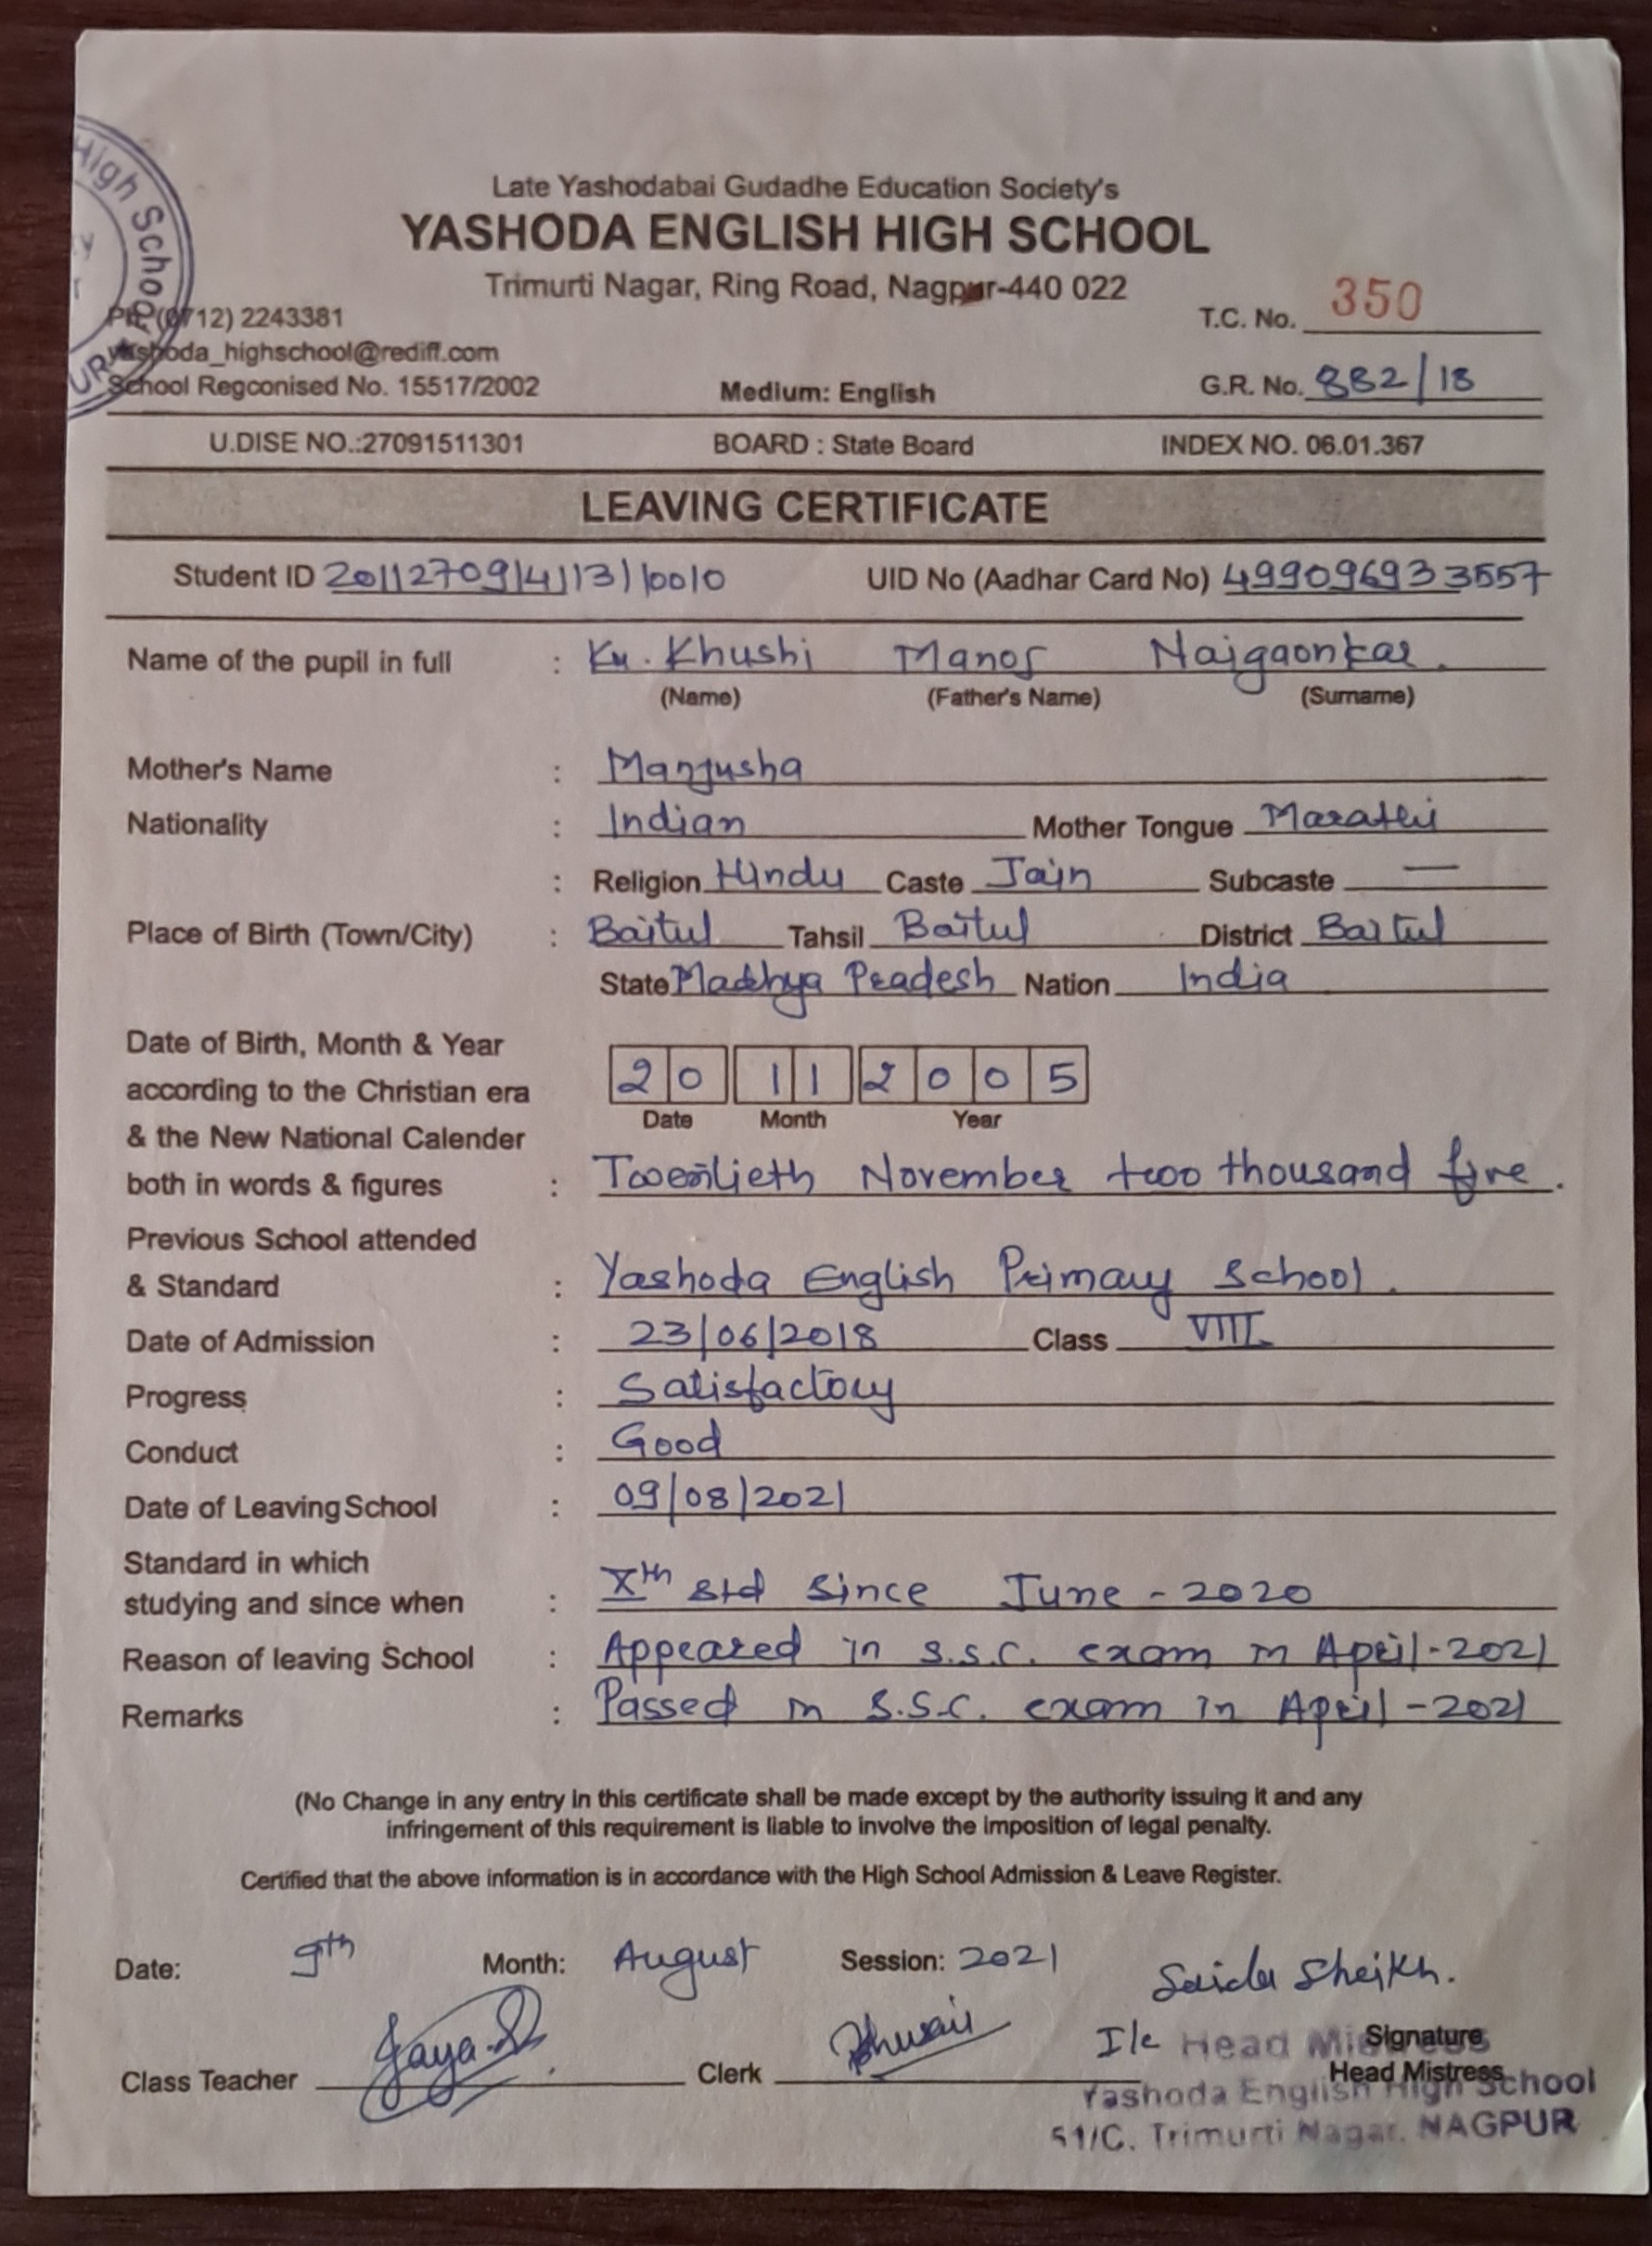 Late Yashodabai Gudadhe Education Society's
YASHODA ENGLISH HIGH SCHOOL
Trimurti Nagar, Ring Road, Nagpur-440 022
High School
Ph. (0712) 2243381
T.C. No. 350
yashoda_highschool@rediff.com
School Regconised No. 15517/2002 Medium: English G.R. No. 882/18
U.DISE NO.:27091511301 BOARD : State Board INDEX NO. 06.01.367
LEAVING CERTIFICATE
Student ID 201127091411310010 UID No (Aadhar Card No) 499096933557
Name of the pupil in full : Ku. Khushi Manoj Naigaonkar.
(Name) (Father's Name) (Surname)
Mother's Name : Manjusha
Nationality : Indian Mother Tongue Marathi
: Religion Hindu Caste Jain Subcaste —
Place of Birth (Town/City) : Baitul Tahsil Baitul District Baitul
State Madhya Pradesh Nation India
Date of Birth, Month & Year
according to the Christian era 20 11 2005
Date Month Year
& the New National Calender
both in words & figures : Twentieth November two thousand five.
Previous School attended
& Standard : Yashoda English Primary School.
Date of Admission : 23/06/2018 Class VIII
Progress : Satisfactory
Conduct : Good
Date of Leaving School : 09/08/2021
Standard in which
studying and since when : Xth std since June - 2020
Reason of leaving School : Appeared in S.S.C. exam in April-2021
Remarks : Passed in S.S.C. exam in April-2021
(No Change in any entry in this certificate shall be made except by the authority issuing it and any
infringement of this requirement is liable to involve the imposition of legal penalty.
Certified that the above information is in accordance with the High School Admission & Leave Register.
Date: 9th Month: August Session: 2021
Saida Sheikh.
I/c Head Mistress
Signature
Class Teacher Jaya Clerk Head Mistress
Yashoda English High School
51/C, Trimurti Nagar, NAGPUR